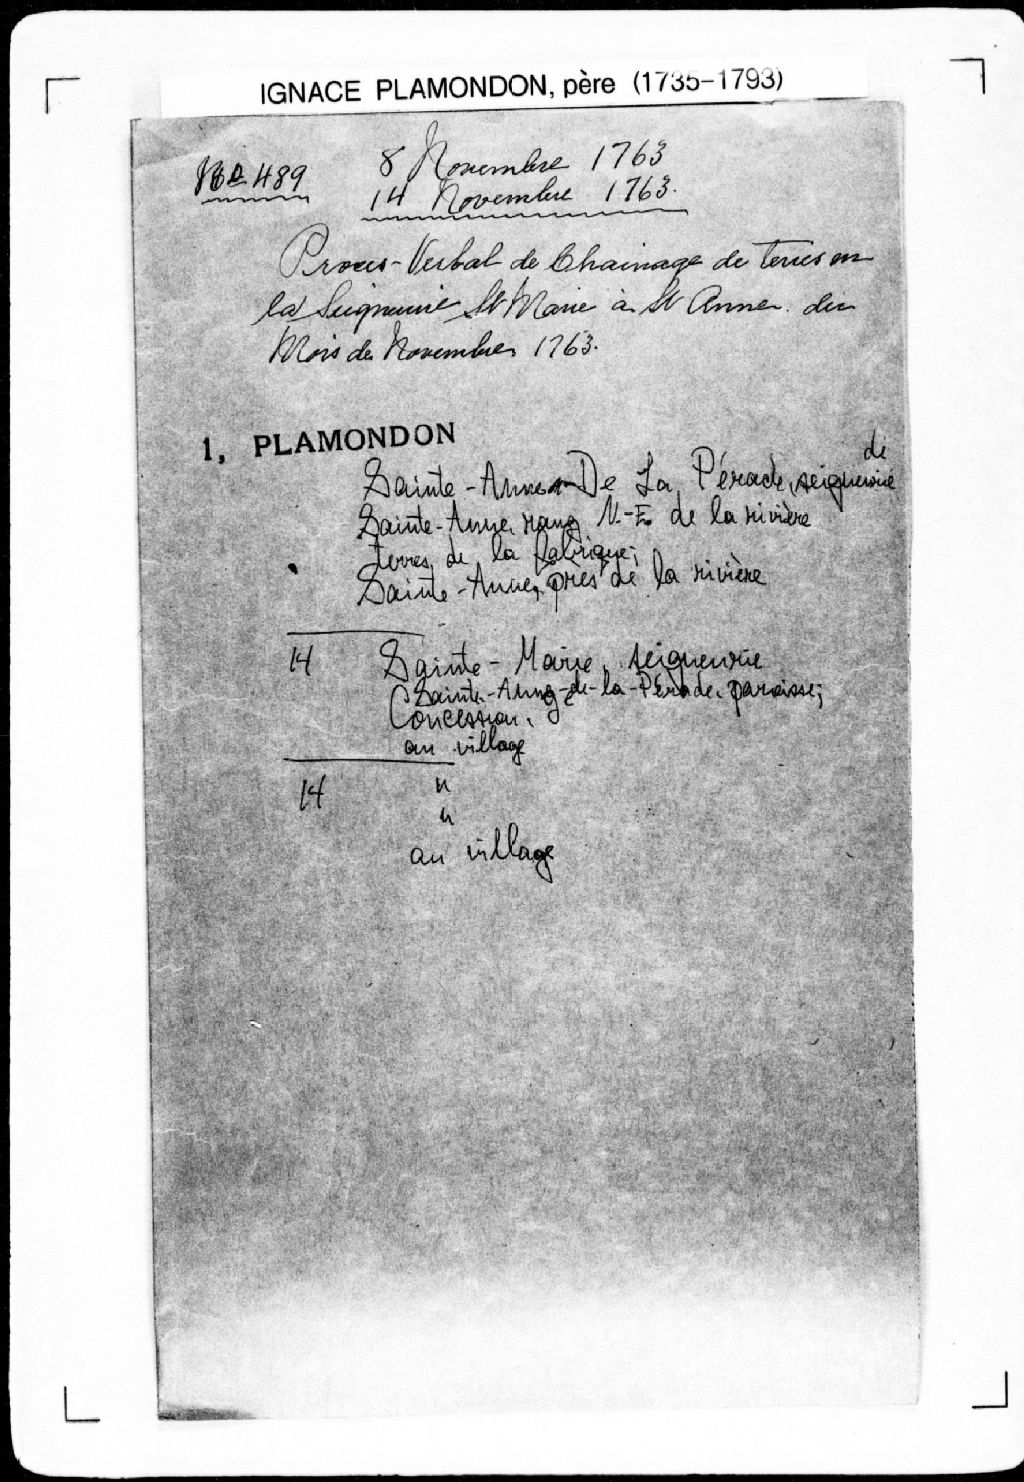 IGNACE PLAMONDON, père (1735-1793)
No 489
8 Novembre 1763
14 Novembre 1763.
Proces-Verbal de Chainage de terres en
la Seigneurie Ste Marie à Ste Anne. du
Mois de Novembre 1763.
1, PLAMONDON
de
Sainte-Anne De La Pérade, seigneurie
Sainte-Anne, rang N.-E. de la rivière
terres de la fabrique;
Sainte-Anne, près de la rivière
14 Sainte-Marie, seigneurie
Sainte-Anne-de-la-Pérade, paroisse;
Concession,
au village
14 "
"
au village